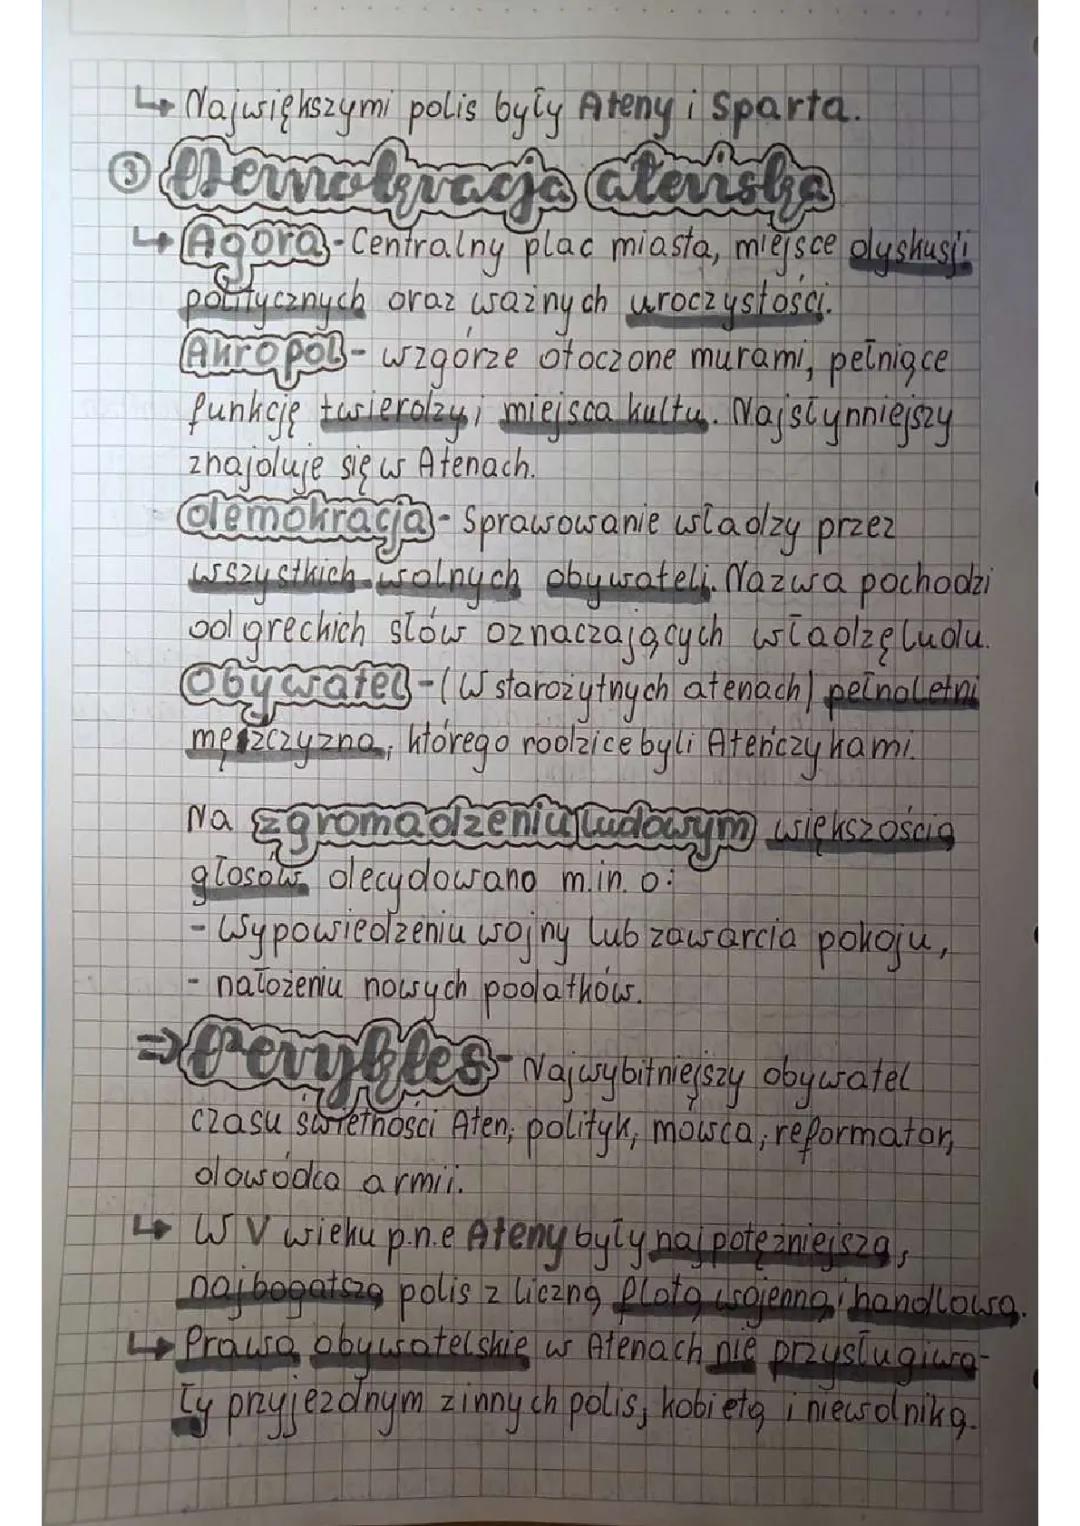 ↳ Największymi polis były Ateny i Sparta.
③ Demokracja ateńska
↳ Agora - Centralny plac miasta, miejsce dyskusji
politycznych oraz ważnych uroczystości.
Akropol - wzgórze otoczone murami, pełniące
funkcję twierdzy i miejsca kultu. Najsłynniejszy
znajduje się w Atenach.
demokracja - Sprawowanie władzy przez
wszystkich wolnych obywateli. Nazwa pochodzi
od greckich słów oznaczających władzę ludu.
Obywatel - (W starożytnych atenach) pełnoletni
mężczyzna, którego rodzice byli Ateńczykami.
Na zgromadzeniu ludowym większością
głosów decydowano m.in. o:
- Wypowiedzeniu wojny lub zawarcia pokoju,
- nałożeniu nowych podatków.
⇒ Perykles - Najwybitniejszy obywatel
czasu świetności Aten, polityk, mówca, reformator,
dowódca armii.
↳ W V wieku p.n.e Ateny były najpotężniejszą,
najbogatszą polis z liczną flotą wojenną i handlową.
↳ Prawa obywatelskie w Atenach nie przysługiwa-
ły przyjezdnym z innych polis, kobietą i niewolniką.